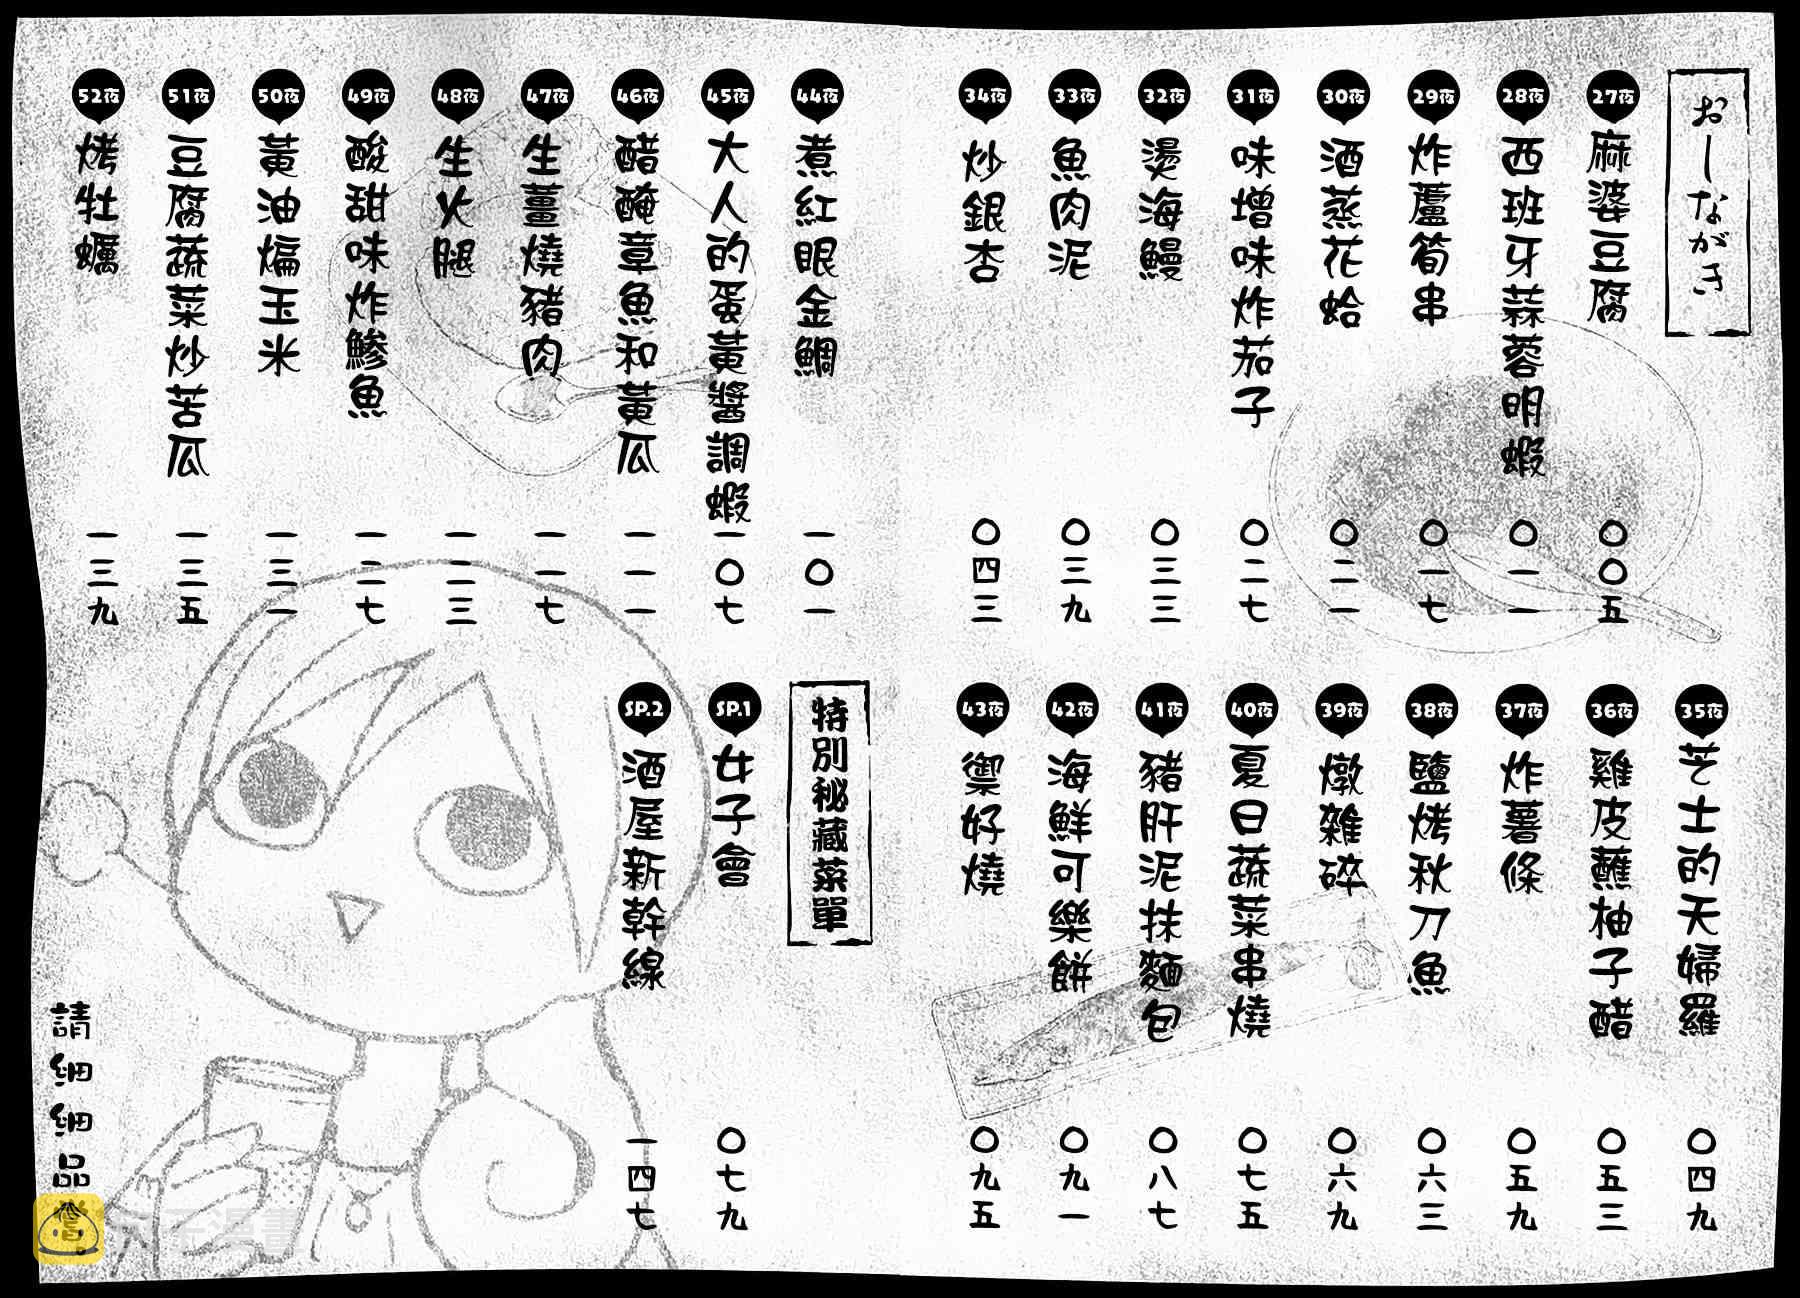 おしながき
27夜 麻婆豆腐 〇〇五
28夜 西班牙蒜蓉明蝦 〇一一
29夜 炸蘆筍串 〇一七
30夜 酒蒸花蛤 〇二一
31夜 味增味炸茄子 〇二七
32夜 燙海鰻 〇三三
33夜 魚肉泥 〇三九
34夜 炒銀杏 〇四三
35夜 芝士的天婦羅 〇四九
36夜 雞皮蘸柚子醋 〇五三
37夜 炸薯條 〇五九
38夜 鹽烤秋刀魚 〇六三
39夜 燉雜碎 〇六九
40夜 夏日蔬菜串燒 〇七五
41夜 豬肝泥抹麵包 〇八七
42夜 海鮮可樂餅 〇九一
43夜 禦好燒 〇九五
44夜 煮紅眼金鯛 一〇一
45夜 大人的蛋黃醬調蝦 一〇七
46夜 醋醃章魚和黃瓜 一一一
47夜 生薑燒豬肉 一一七
48夜 生火腿 一二三
49夜 酸甜味炸鯵魚 一二七
50夜 黃油煸玉米 一三一
51夜 豆腐蔬菜炒苦瓜 一三五
52夜 烤牡蠣 一三九
特別秘藏菜單
SP.1 女子會 〇七九
SP.2 酒屋新幹線 一四七
請細細品嘗。
包子漫畫